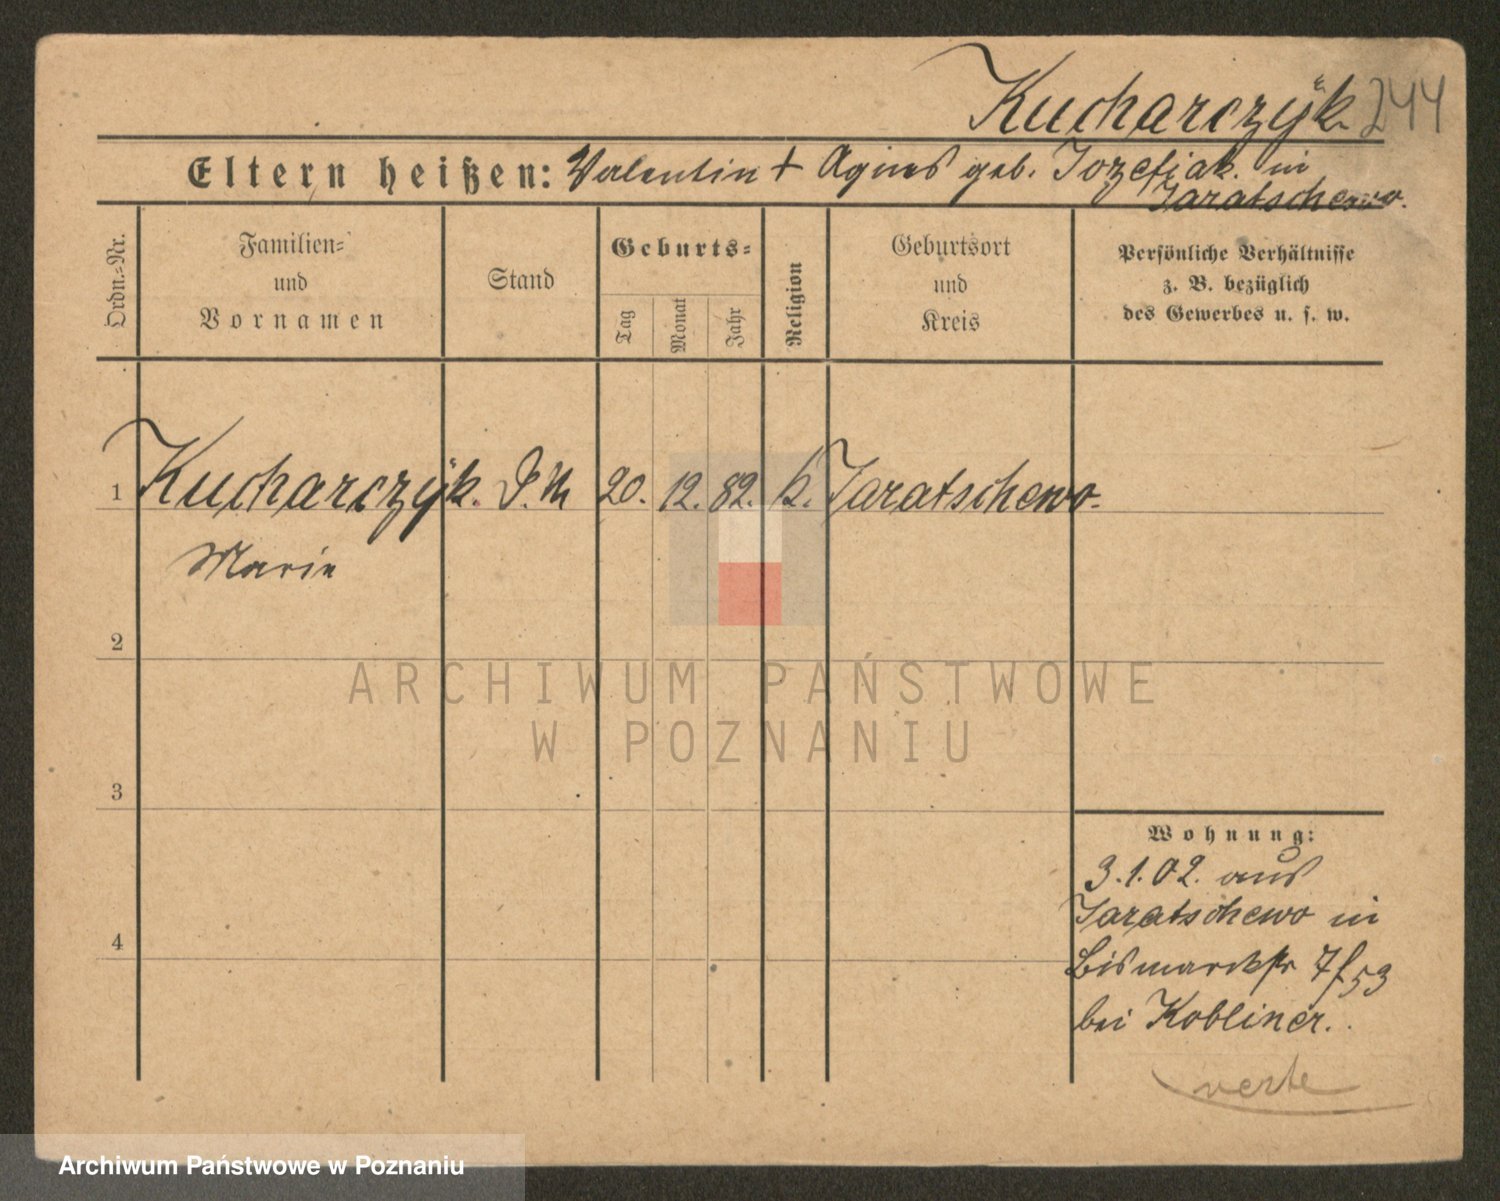 Kucharczÿk 244
Eltern heißen: Valentin + Agnes geb. Jozefiak in
Jaratschewo.
Ordn.=Nr.
Familien=
und
Vornamen
Stand
Geburts=
Tag
Monat
Jahr
Religion
Geburtsort
und
Kreis
Persönliche Verhältnisse
z. B. bezüglich
des Gewerbes u. s. w.
1 Kucharczÿk. D.M 20. 12. 82. k. Jaratschewo.
Marie
2
3
4
Wohnung:
3.1.02. aus
Jaratschewo in
Bismarckstr 7/53
bei Kobliner.
verte
ARCHIWUM PAŃSTWOWE
W POZNANIU
Archiwum Państwowe w Poznaniu